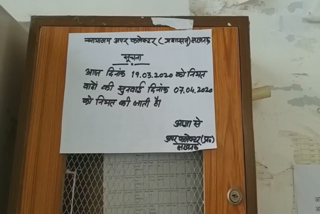 न्यायालय अपर कलेक्टर (प्रशासन) लखनऊ
सूचना
आज दिनांक 19.03.2020 को नियत
वादों की सुनवाई दिनांक 07.04.2020
को नियत की जाती है।
आज्ञा से
अपर कलेक्टर (प्र०)
लखनऊ